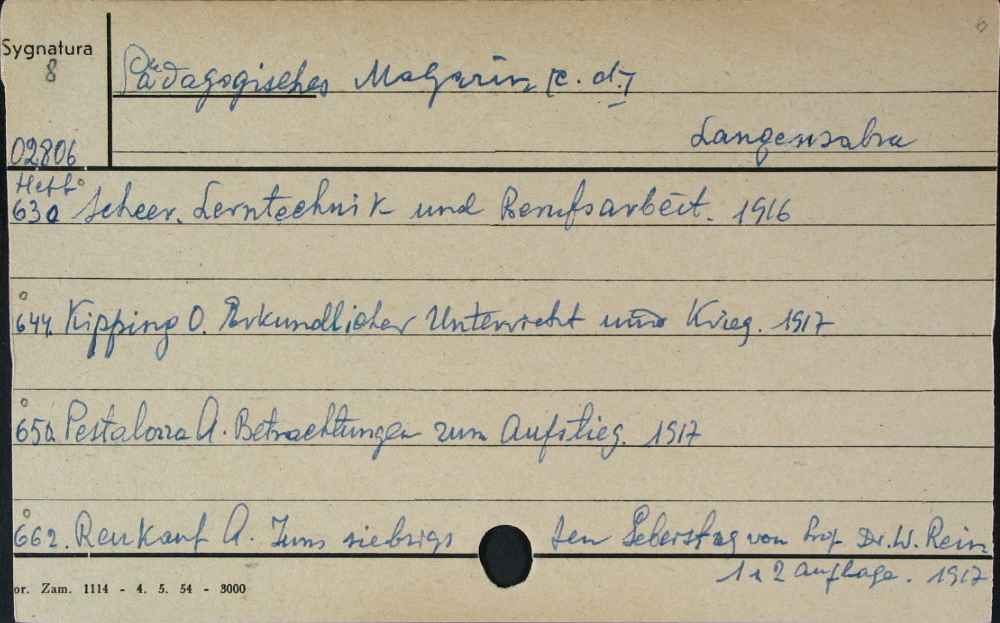 Sygnatura
8
Pädagogisches Magazin [c. d.]
Langensalza
02806
Heft
630 Scheer. Lerntechnik und Berufsarbeit. 1916
644. Kipping O. Erkundlicher Unterricht und Krieg. 1917
650. Pestalozza A. Betrachtungen zum Aufstieg. 1917
662. Reukauf A. Zum siebzigsten Geburtstag von Prof. Dr. W. Rein
1 u 2 Auflage. 1917
or. Zam. 1114 - 4. 5. 54 - 3000